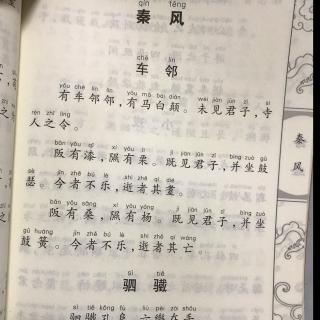 qín fēng
秦风
chē lín
车邻
yǒu chē lín lín yǒu mǎ bái diān wèi jiàn jūn zǐ sì
有车邻邻,有马白颠。未见君子,寺
rén zhī lìng
人之令。
bǎn yǒu qī xí yǒu lì jì jiàn jūn zǐ bìng zuò gǔ
阪有漆,隰有栗。既见君子,并坐鼓
sè jīn zhě bú lè shì zhě qí dié
瑟。今者不乐,逝者其耋。
bǎn yǒu sāng xí yǒu yáng jì jiàn jūn zǐ bìng zuò
阪有桑,隰有杨。既见君子,并坐
gǔ huáng jīn zhě bú lè shì zhě qí wáng
鼓簧。今者不乐,逝者其亡。
sì tiě
驷驖
sì tiě kǒng fù liù pèi zài shǒu
驷驖孔阜,六辔在手
秦风